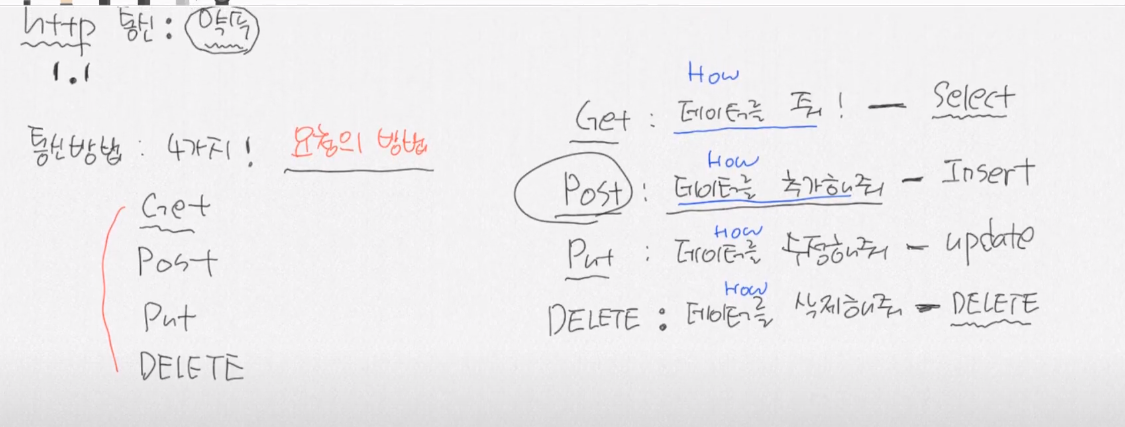 http 통신 : 약속
1.1
통신방법 : 4가지! 요청의 방법
Get
Post
Put
DELETE
How
Get : 데이터를 줘! — Select
How
Post : 데이터를 추가해줘 — Insert
How
Put : 데이터를 수정해줘 — update
How
DELETE : 데이터를 삭제해줘 — DELETE